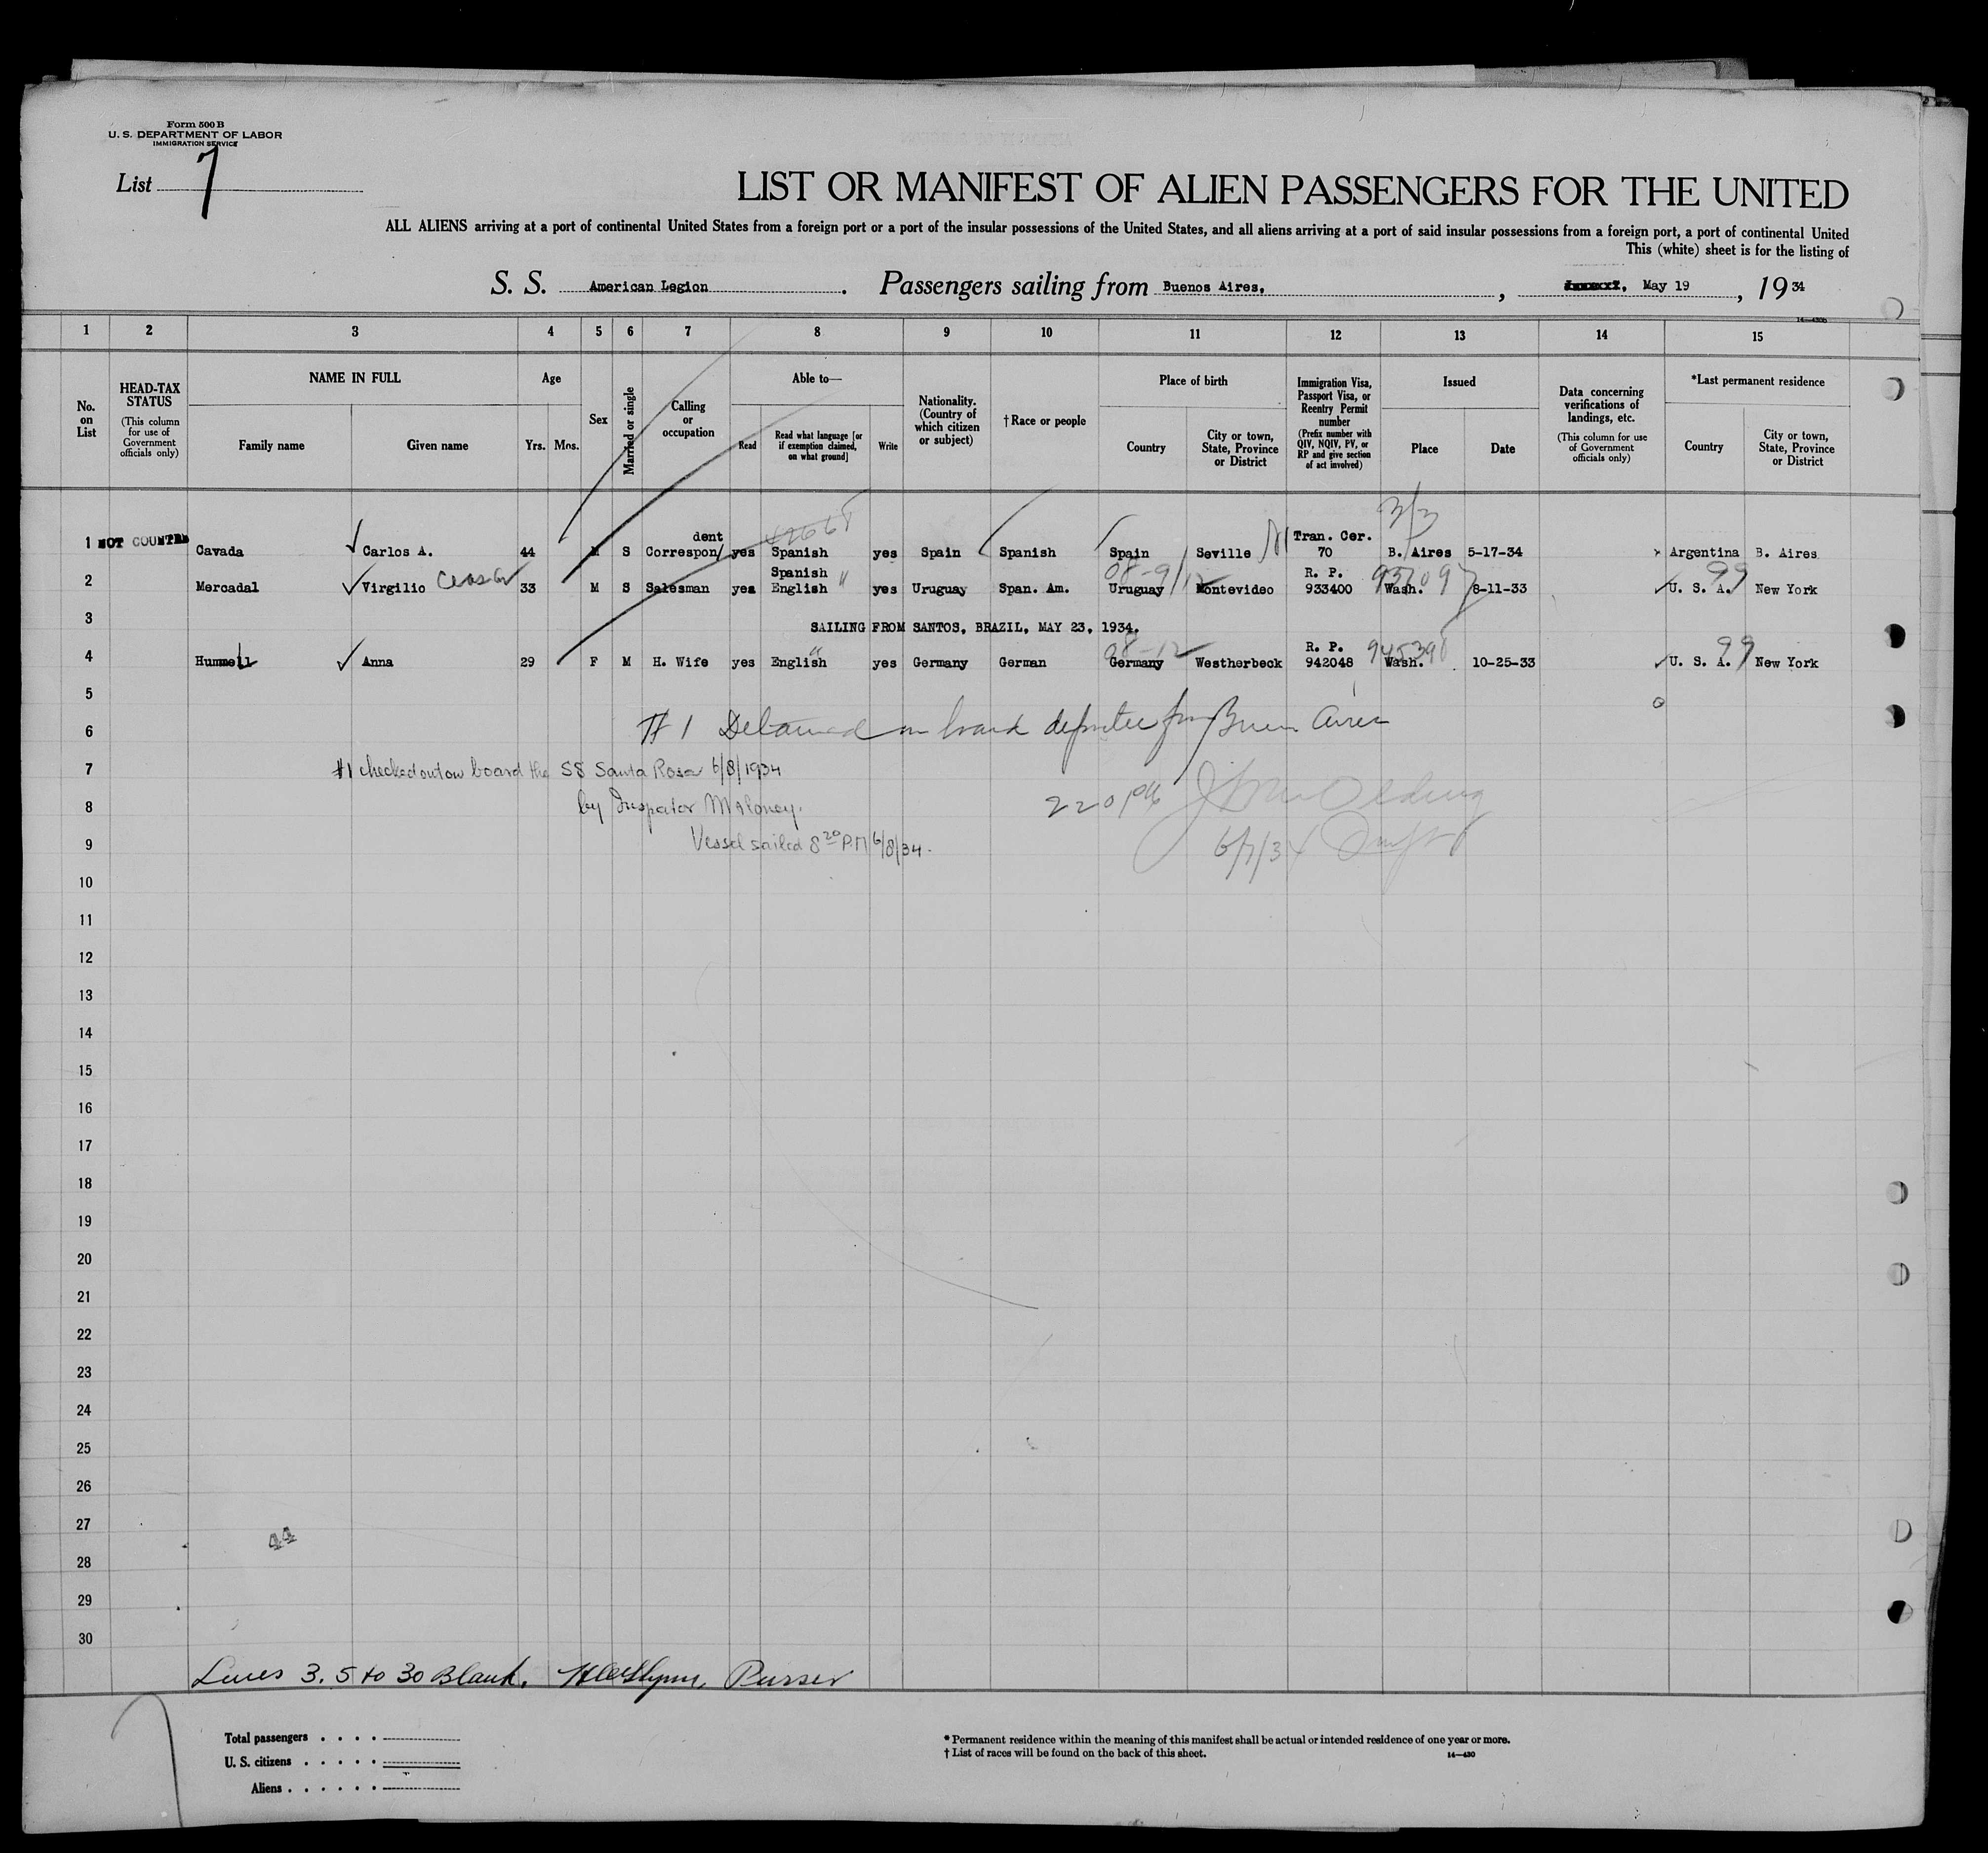 Form 500 B
U. S. DEPARTMENT OF LABOR
IMMIGRATION SERVICE
List 7
LIST OR MANIFEST OF ALIEN PASSENGERS FOR THE UNITED
ALL ALIENS arriving at a port of continental United States from a foreign port or a port of the insular possessions of the United States, and all aliens arriving at a port of said insular possessions from a foreign port, a port of continental United
This (white) sheet is for the listing of
S. S. American Legion. Passengers sailing from Buenos Aires, , May 19, 1934
14—430b
1 2 3 4 5 6 7 8 9 10 11 12 13 14 15
No. on List
HEAD-TAX STATUS (This column for use of Government officials only)
NAME IN FULL
Family name Given name
Age
Yrs. Mos.
Sex
Married or single
Calling or occupation
Able to—
Read Read what language [or if exemption claimed, on what ground] Write
Nationality. (Country of which citizen or subject)
† Race or people
Place of birth
Country City or town, State, Province or District
Immigration Visa, Passport Visa, or Reentry Permit number (Prefix number with QIV, NQIV, PV, or RP and give section of act involved)
Issued
Place Date
Data concerning verifications of landings, etc. (This column for use of Government officials only)
*Last permanent residence
Country City or town, State, Province or District
3/3
dent Tran. Cer.
1 NOT COUNTED Cavada Carlos A. 44 M S Correspon/ yes Spanish yes Spain Spanish Spain Seville 70 B. Aires 5-17-34 Argentina B. Aires
Spanish 08-9/12 R. P. 99
2 Mercadal Virgilio 33 M S Salesman yes English " yes Uruguay Span. Am. Uruguay Montevideo 933400 Wash. 8-11-33 U. S. A. New York
3 SAILING FROM SANTOS, BRAZIL, MAY 23, 1934.
08-12 R. P. 945398 99
4 Hummell Anna 29 F M H. Wife yes English yes Germany German Germany Westherbeck 942048 Wash. 10-25-33 U. S. A. New York
5
6 #1 Detained on board deportee from Buenos Aires
7 #1 checked out on board the SS Santa Rosa 6/8/1934
8 by Inspector Maloney. 220 PM
9 Vessel sailed 8 20 P.M 6/8/34. 6/7/34
10
11
12
13
14
15
16
17
18
19
20
21
22
23
24
25
26
27 44
28
29
30
Lines 3, 5 to 30 Blank. Purser
Total passengers . . . .
U. S. citizens . . . . .
Aliens . . . . . .
* Permanent residence within the meaning of this manifest shall be actual or intended residence of one year or more.
† List of races will be found on the back of this sheet. 14—430